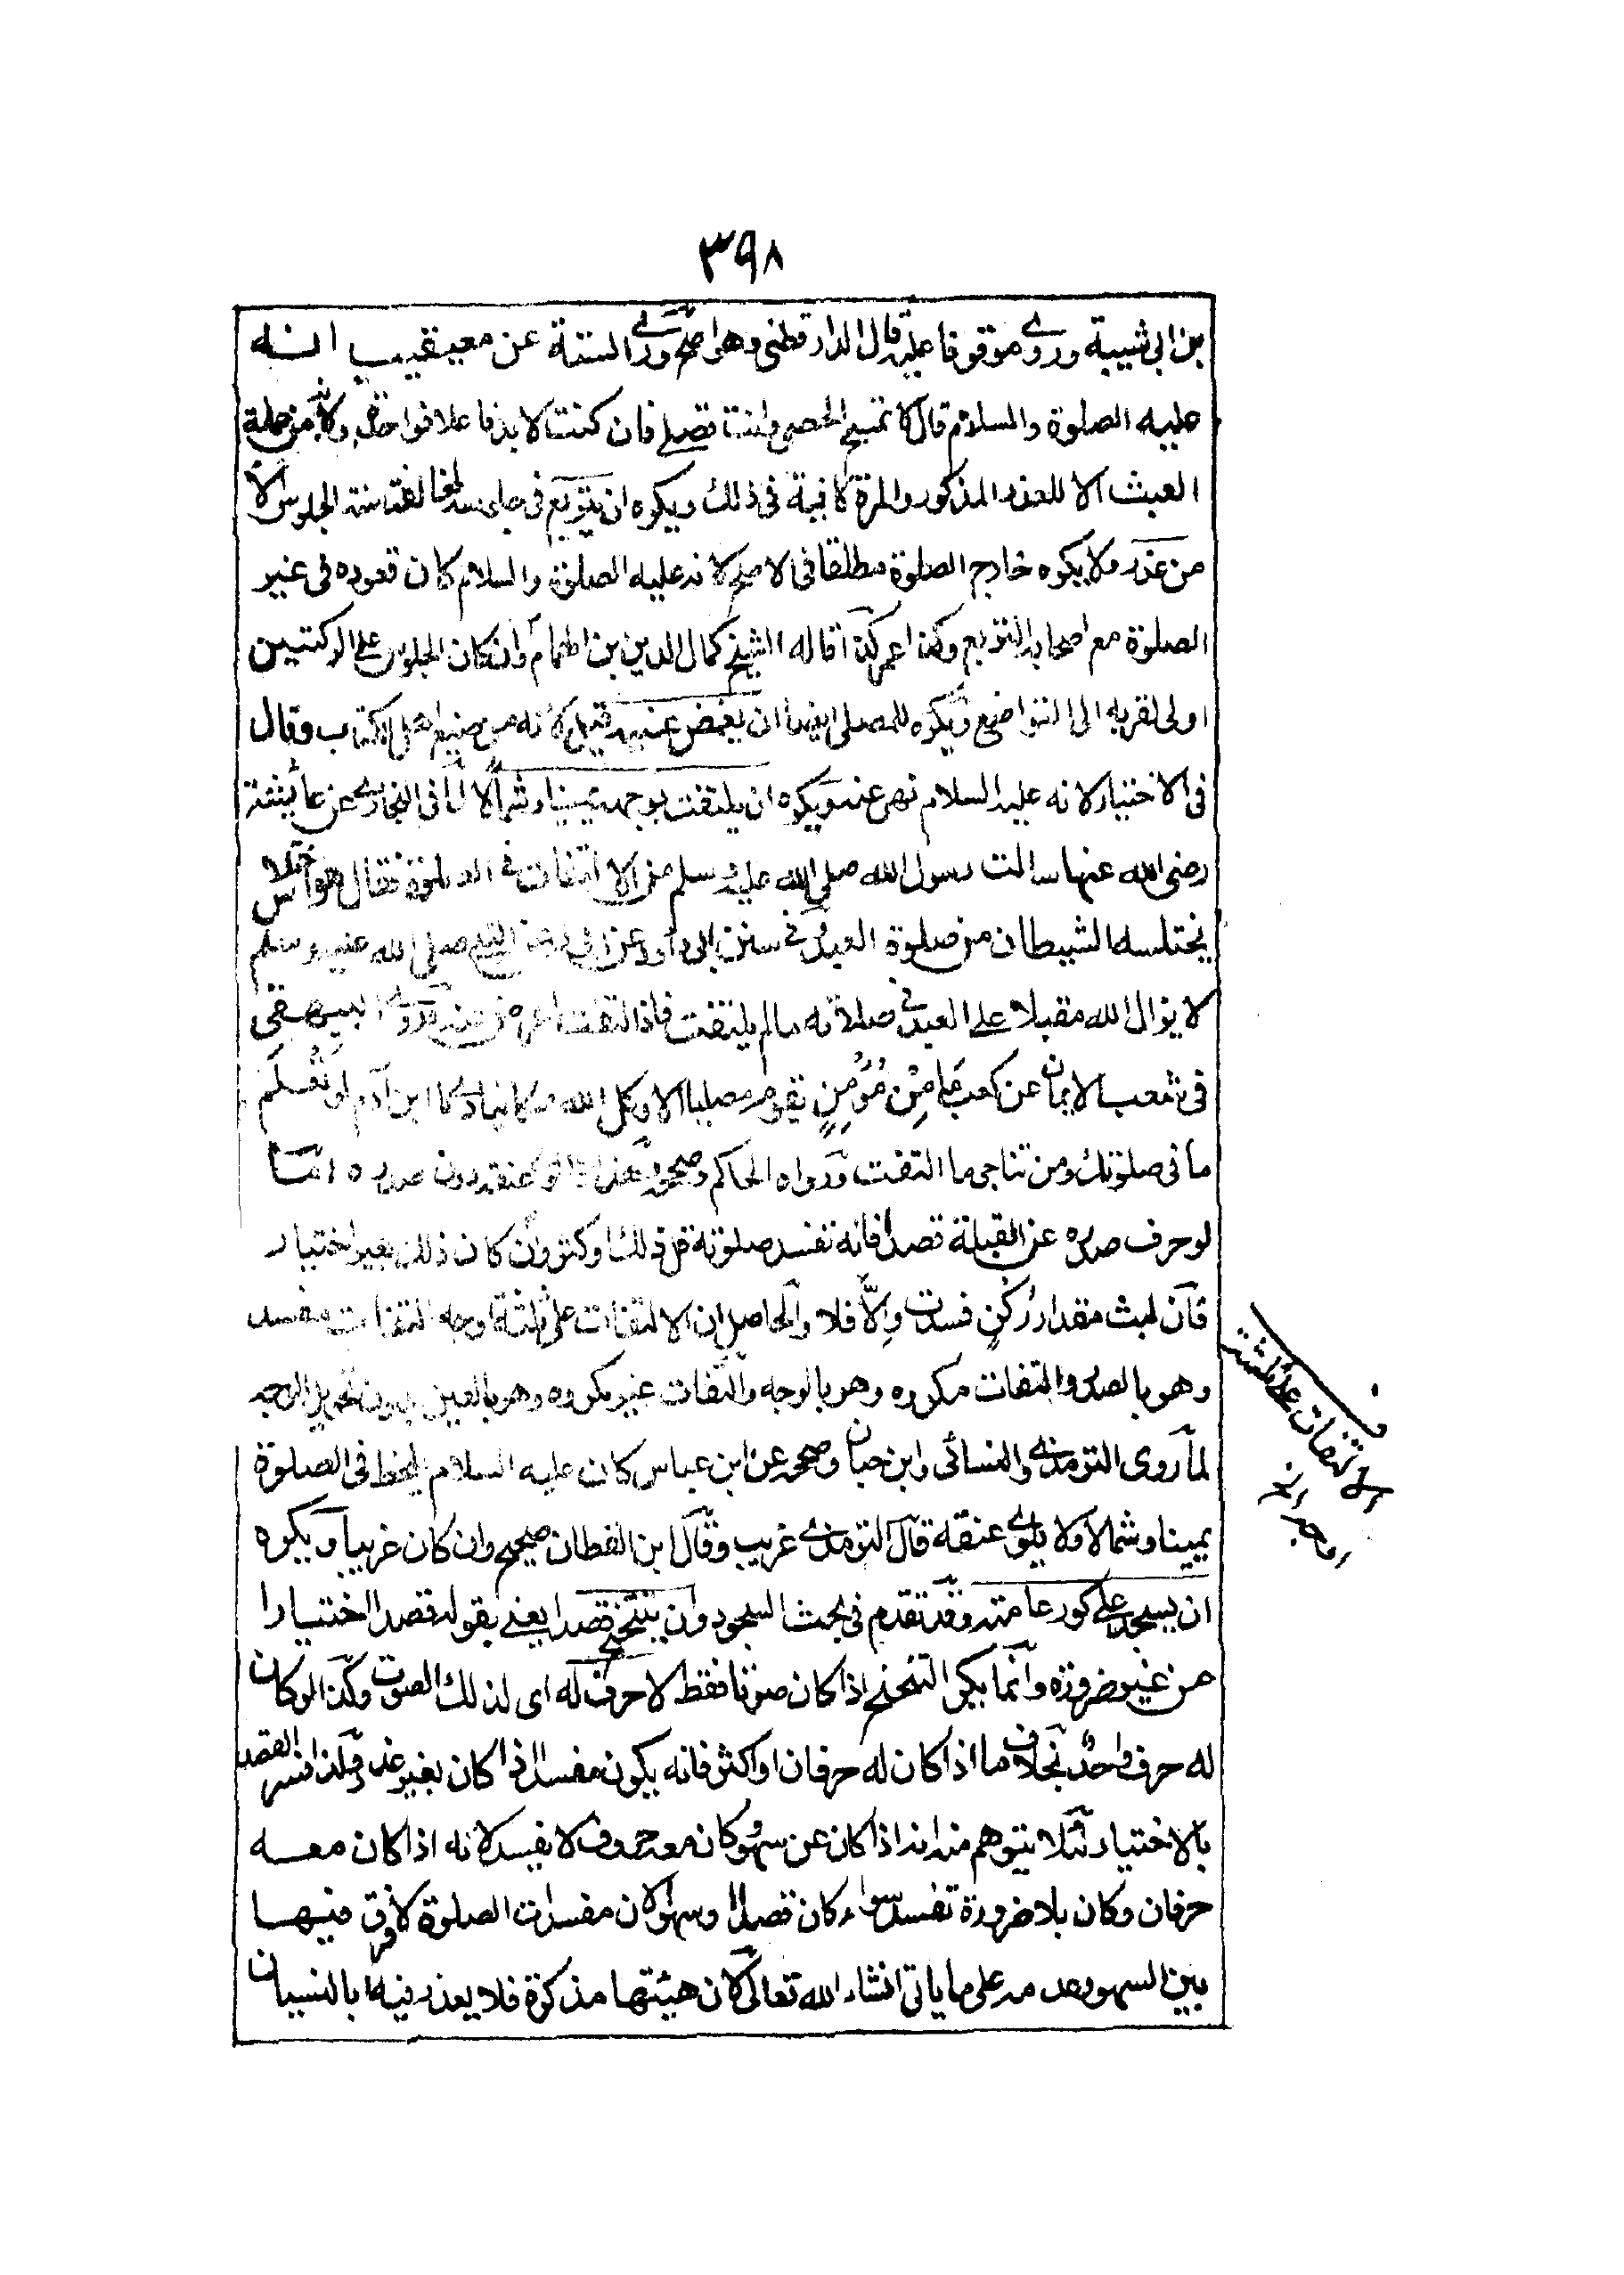 ٣٩٨
بن ابى شيبة وروى موقوفا عليه قال الدارقطنى وهو اصح وروى الستة عن معيقيب انه
عليه الصلوة والسلام قال لا تمسح الحصى وانت تصلى فان كنت لا بد فاعلا فواحدة ولانه من جملة
العبث الا للعذر المذكور والمرة كافية فى ذلك ويكره ان يتربع فى جلوسه لمخالفته سنة الجلوس الا
من عذر ولا يكره خارج الصلوة مطلقا فى الاصح لانه عليه الصلوة والسلام كان قعوده فى غير
الصلوة مع اصحابه التربع وكذا عمر كذا قاله الشيخ كمال الدين بن الهمام وان كان الجلوس على الركبتين
اولى لقربه الى التواضع ويكره للمصلى ايضا ان يغمض عينيه قيل لانه من صنيع اهل الكتاب وقال
فى الاختيار لانه عليه السلام نهى عنه ويكره ان يلتفت بوجهه يمينا وشمالا لما فى البخارى عن عائشة
رضى الله عنها سالت رسول الله صلى الله عليه وسلم عن الالتفات فى الصلوة فقال هو اختلاس
يختلسه الشيطان من صلوة العبد وفى سنن ابى داود عن ابى ذر عن النبى صلى الله عليه وسلم
لا يزال الله مقبلا على العبد فى صلاته ما لم يلتفت فاذا التفت اعرض عنه وروى البيهقى
فى شعب الايمان عن كعب مَا مِنْ مُؤمِنٍ يقوم مصليا الا وكل الله ملكا ينادى يا ابن آدم لو تَعْلَم
ما فى صلوتك ومن تناجى ما التفت ورواه الحاكم وصححه وهذا اذا لوى عنقه دون صدره امّا
لو حرف صدره عن القبلة قصدا فانه تفسد صلوته قل ذلك او كثر وان كان ذلك بغير اختيار
فان لبث مقدار رُكنٍ فسدت وإلاّ فلا والحاصل ان الالتفات على ثلثة اوجه التفات مفسد
وهو بالصدر والتفات مكروه وهو بالوجه والتفات غير مكروه وهو بالعين بدون تحويل الوجه
لما روى الترمذى والنسائى وابن حبان وصححه عن ابن عباس كان عليه السلام يلحظ فى الصلوة
يمينا وشمالا ولا يلوى عنقه قال الترمذى غريب وقال ابن القطان صحيح وان كان غريبا ويكره
ان يسجد على كور عمامته وقد تقدم فى بحث السجود وان يتنحنح قصدا يعنى بقوله قصدا اختيارا
من غير ضرورة وانما يكره التنحنح اذا كان صوتا فقط لا حرف له اى لذلك الصوت وكذا لو كان
له حرف واحد بخلاف ما اذا كان له حرفان او اكثر فانه يكون مفسدا اذا كان بغير عذر ولذا فسر القصد
بالاختيار لئلا يتوهم منه انه اذا كان عن سهو وكان معه حروف لا يفسد لانه اذا كان معه
حرفان وكان بلا ضرورة تفسد سواء كان قصدا او سهوا لان مفسدات الصلوة لا فرق فيها
بين السهو وعدمه على ما ياتى انشاء الله تعالى لان هيئتها مذكرة فلا يعذر فيها بالنسيان
ف
الالتفات على ثلثة
اوجه الخ